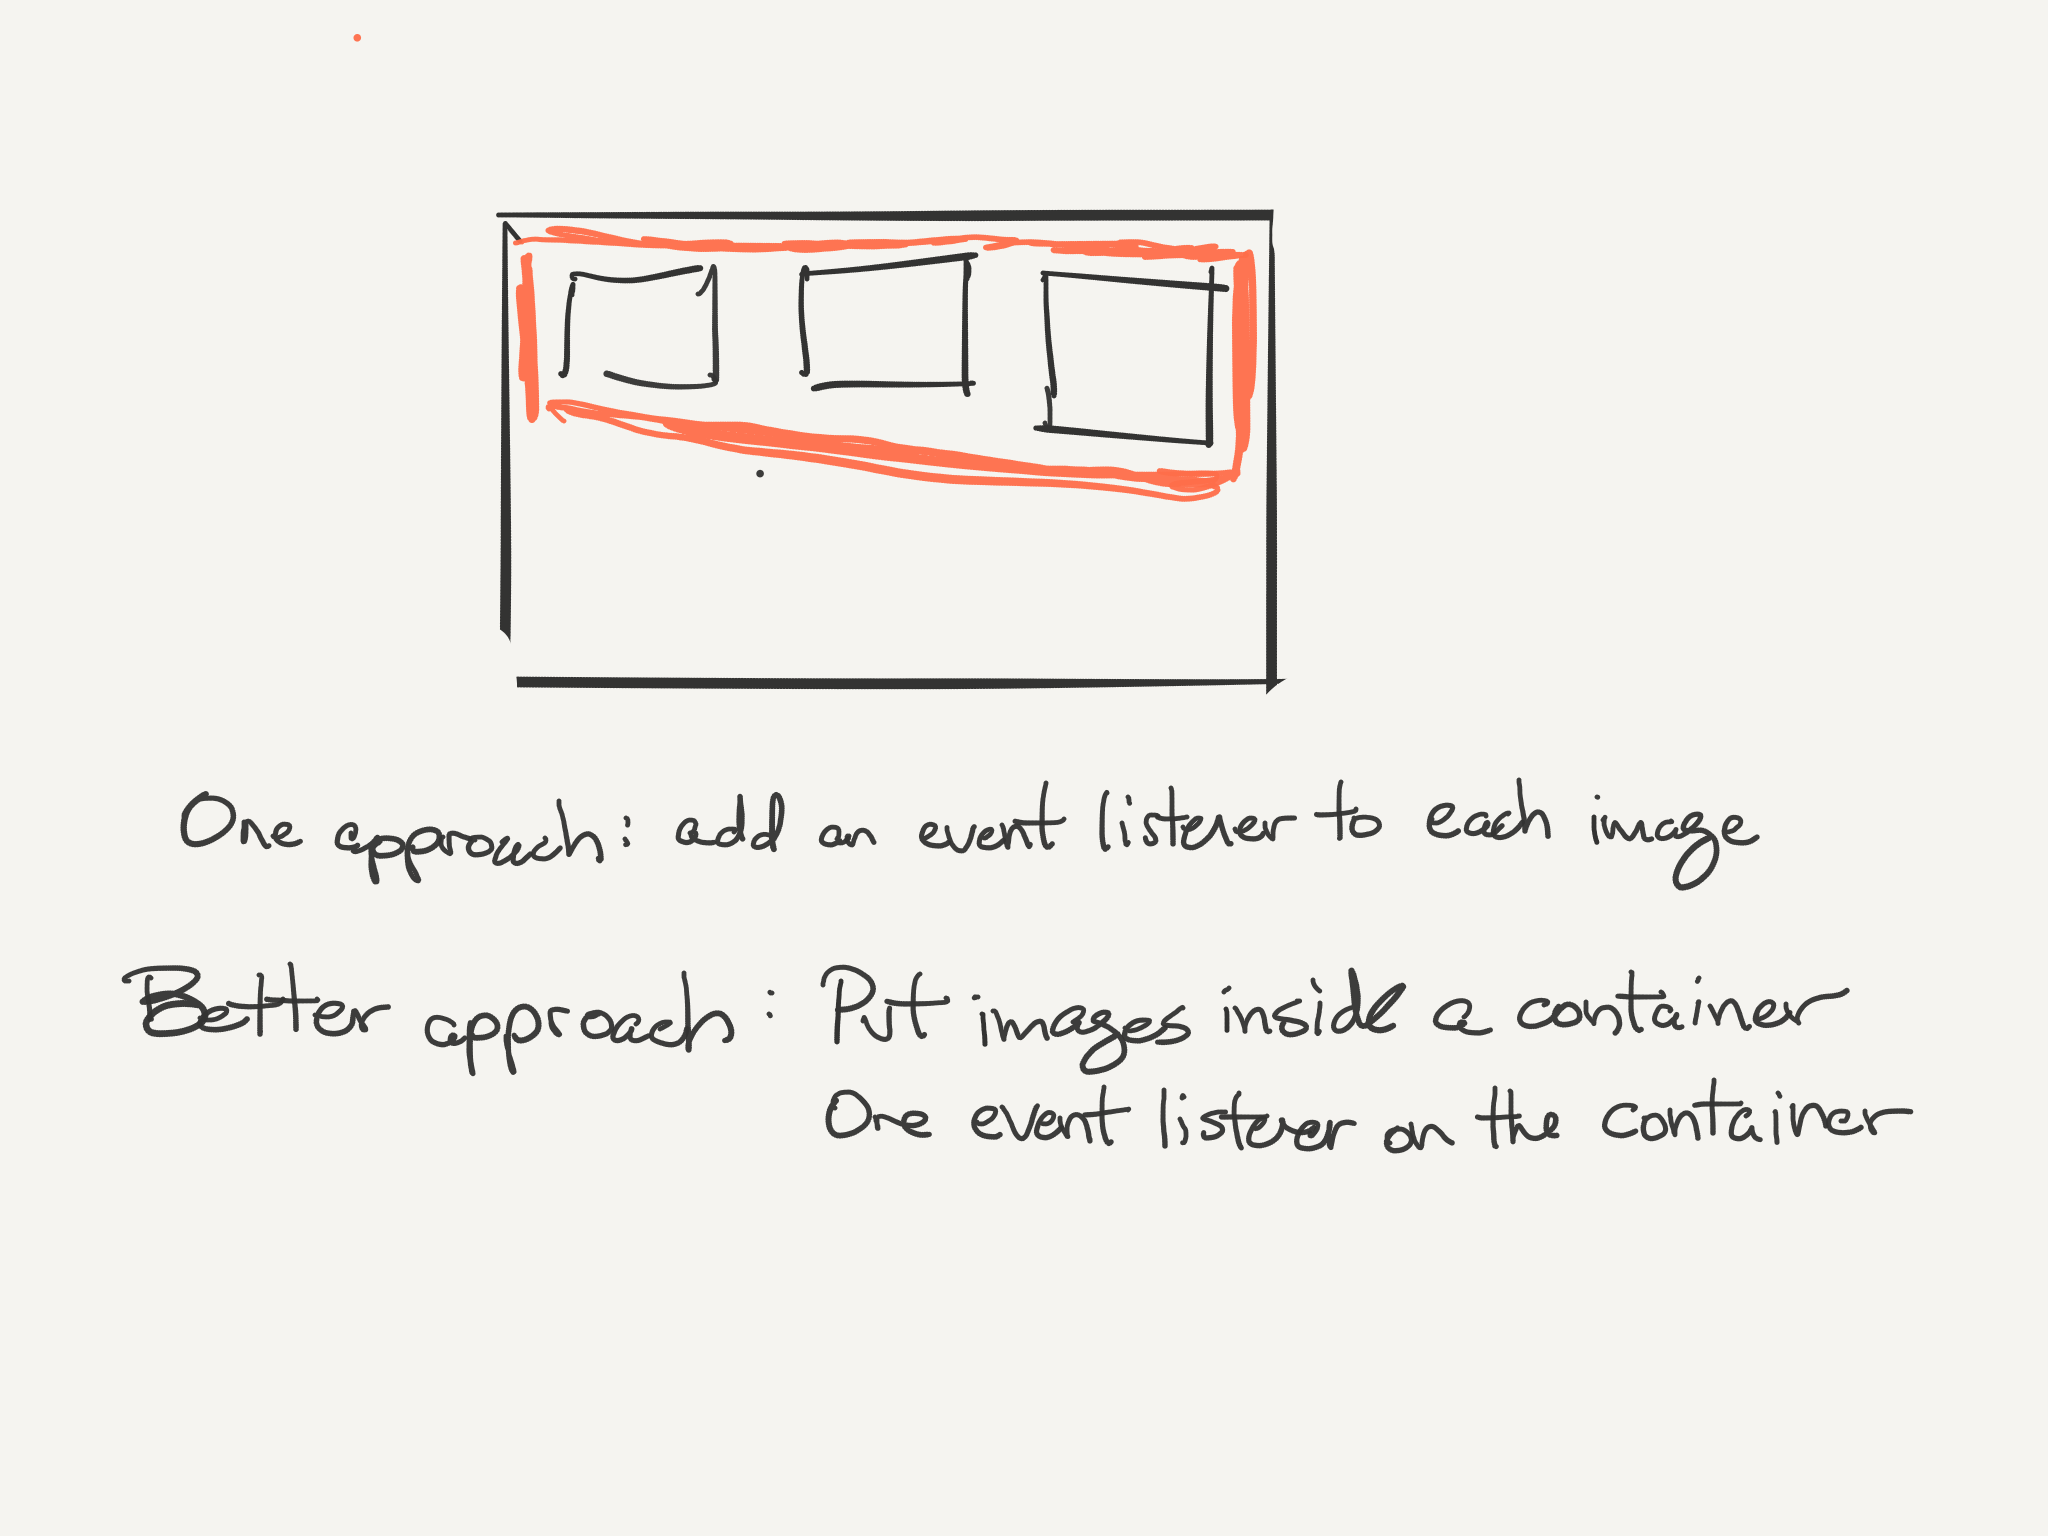 One approach: add an event listener to each image
Better approach: Put images inside a container
One event listener on the container